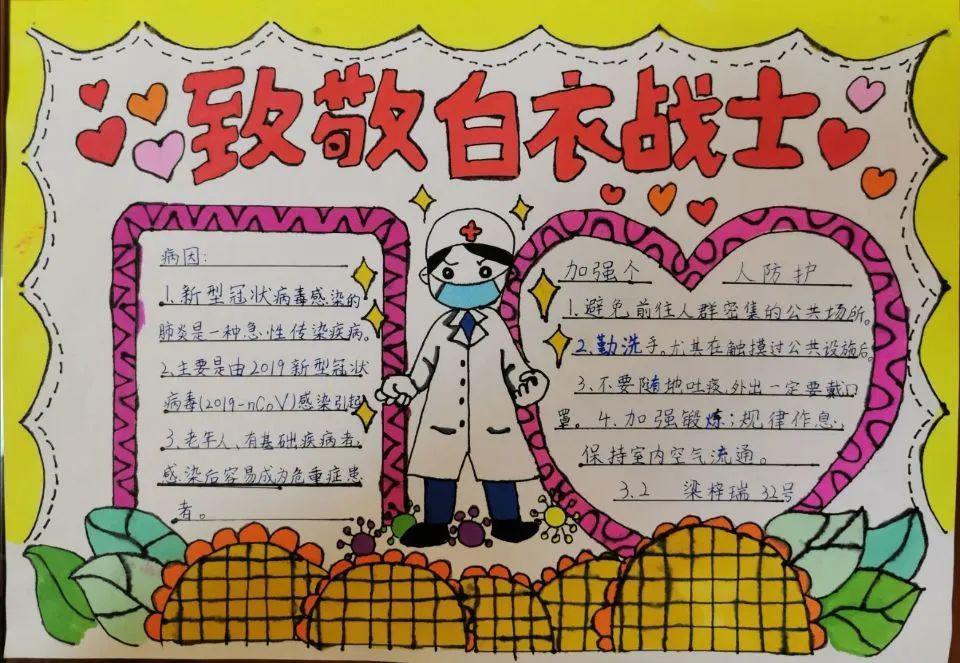 致敬白衣战士
病因:
1.新型冠状病毒感染的
肺炎是一种急性传染疾病。
2.主要是由2019新型冠状
病毒(2019-nCoV)感染引起
3.老年人、有基础疾病者,
感染后容易成为危重症患
者。
加强个人防护
1.避免前往人群密集的公共场所。
2.勤洗手。尤其在触摸过公共设施后。
3.不要随地吐痰,外出一定要戴口
罩。4.加强锻炼;规律作息,
保持室内空气流通。
3.2 梁梓瑞 32号